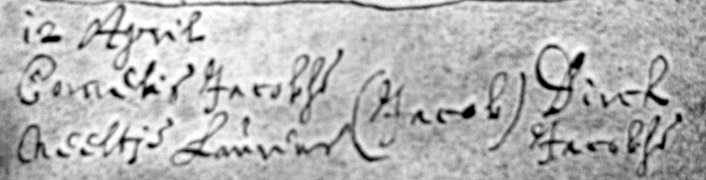 12 April
Cornelis Jacobsz
Neeltje Laurens (Jacob) Dirck
Jacobsz